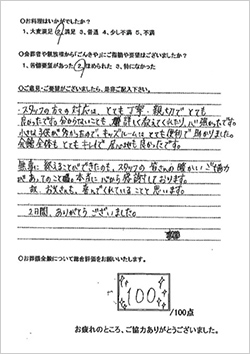 ○お料理はいかがでしたか？
1、大変満足 2、満足 3、普通 4、少し不満 5、不満
1、 2、ほめられた 3、特になかった
○ご意見・ご要望がございましたら、是非ご記入下さい。
スタッフの方々の対応は、とても丁寧・親切でとても
良かったです。分からないことも 詳しく教えてくれたり、心強かったです。
小さな子供が 方も キッズルームは とても便利で 助かりました。
会館全体も とてもキレイで 居心地も良かったです。
無事に 終えることができたのも、スタッフの 皆さんの 暖かい ご協力
があってのこと 本当に 心から感謝しております。
故 お父さんも、喜んでくれていることと 思います。
2日間、ありがとう ございました。
○お葬儀全般について総合評価をお願いいたします。
100
/100点
お疲れのところ、ご協力ありがとうございました。